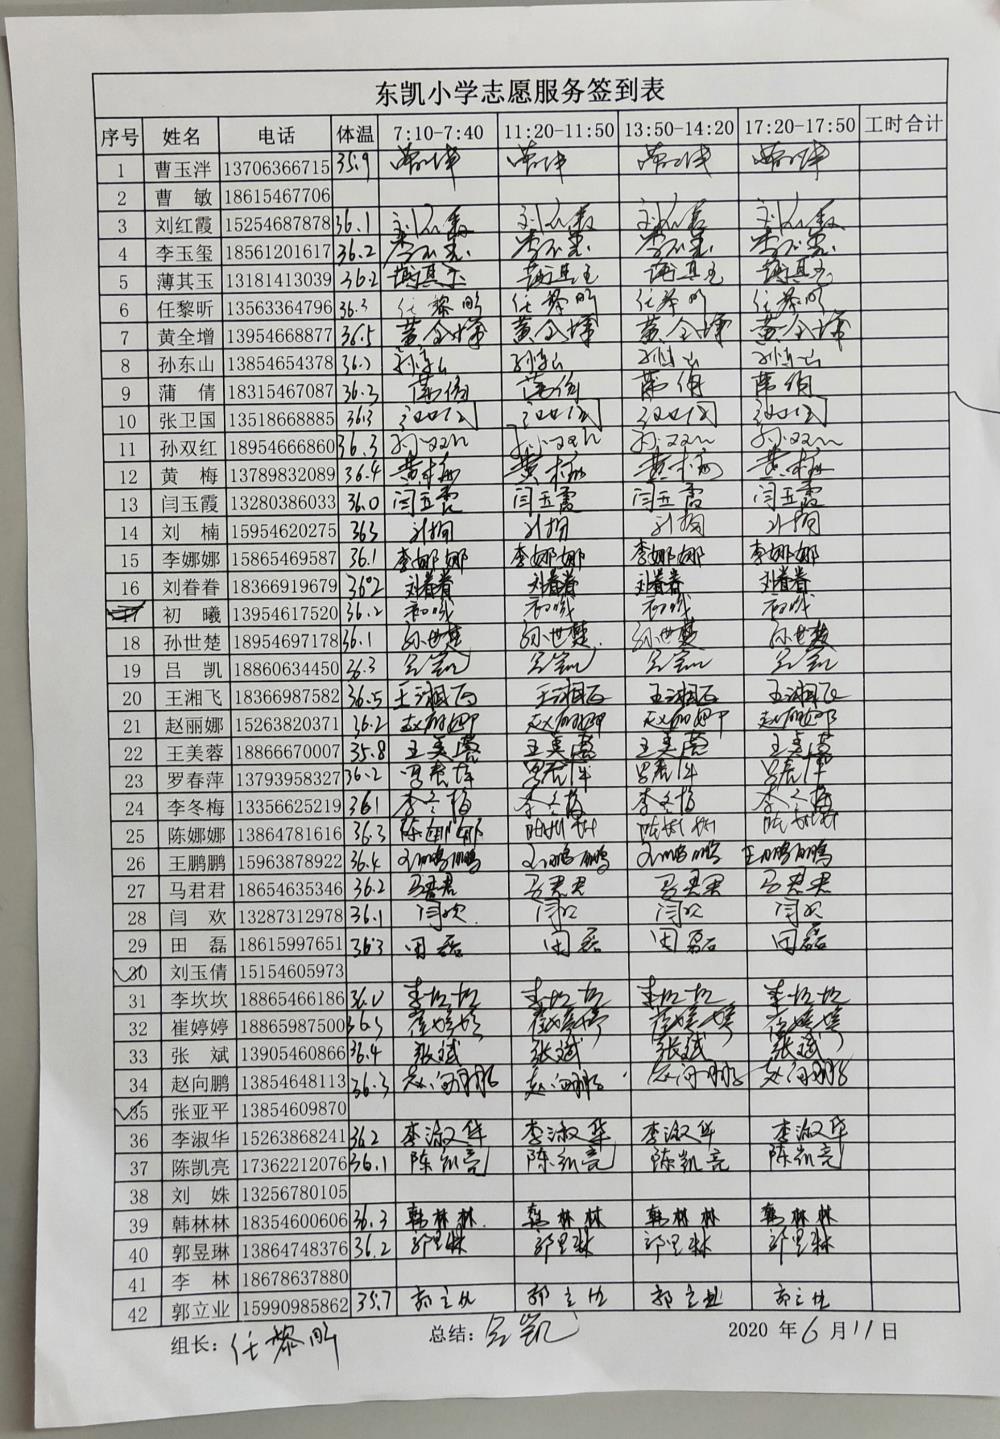 东凯小学志愿服务签到表
序号 姓名 电话 体温 7:10-7:40 11:20-11:50 13:50-14:20 17:20-17:50 工时合计
1 曹玉泮 13706366715 35.9
2 曹 敏 18615467706
3 刘红霞 15254687878 36.1 刘红霞 刘红霞 刘红霞 刘红霞
4 李玉玺 18561201617 36.2 李玉玺 李玉玺 李玉玺 李玉玺
5 薄其玉 13181413039 36.2 薄其玉 薄其玉 薄其玉 薄其玉
6 任黎昕 13563364796 36.3 任黎昕 任黎昕 任黎昕 任黎昕
7 黄全增 13954668877 36.5 黄全增 黄全增 黄全增 黄全增
8 孙东山 13854654378 36.2 孙东山 孙东山 孙东山 孙东山
9 蒲 倩 18315467087 36.3 蒲倩 蒲倩 蒲倩 蒲倩
10 张卫国 13518668885 36.3 张卫国 张卫国 张卫国 张卫国
11 孙双红 18954666860 36.3 孙双红 孙双红 孙双红 孙双红
12 黄 梅 13789832089 36.4 黄梅 黄梅 黄梅 黄梅
13 闫玉霞 13280386033 36.0 闫玉霞 闫玉霞 闫玉霞 闫玉霞
14 刘 楠 15954620275 363 刘楠 刘楠 刘楠 刘楠
15 李娜娜 15865469587 36.1 李娜娜 李娜娜 李娜娜 李娜娜
16 刘眷眷 18366919679 36°2 刘眷眷 刘眷眷 刘眷眷 刘眷眷
17 初 曦 13954617520 36.2 初曦 初曦 初曦 初曦
18 孙世楚 18954697178 36.1 孙世楚 孙世楚 孙世楚 孙世楚
19 吕 凯 18860634450 36.3 吕凯 吕凯 吕凯 吕凯
20 王湘飞 18366987582 36.5 王湘飞 王湘飞 王湘飞 王湘飞
21 赵丽娜 15263820371 36.2 赵丽娜 赵丽娜 赵丽娜 赵丽娜
22 王美蓉 18866670007 35.8 王美蓉 王美蓉 王美蓉 王美蓉
23 罗春萍 13793958327 36.2 罗春萍 罗春萍 罗春萍 罗春萍
24 李冬梅 13356625219 361 李冬梅 李冬梅 李冬梅 李冬梅
25 陈娜娜 13864781616 36.3 陈娜娜 陈娜娜 陈娜娜 陈娜娜
26 王鹏鹏 15963878922 36.4 王鹏鹏 王鹏鹏 王鹏鹏 王鹏鹏
27 马君君 18654635346 36.2 马君君 马君君 马君君 马君君
28 闫 欢 13287312978 36.1 闫欢 闫欢 闫欢 闫欢
29 田 磊 18615997651 36.3 田磊 田磊 田磊 田磊
30 刘玉倩 15154605973
31 李坎坎 18865466186 36.0 李坎坎 李坎坎 李坎坎 李坎坎
32 崔婷婷 18865987500 36.5 崔婷婷 崔婷婷 崔婷婷 崔婷婷
33 张 斌 13905460866 36.4 张斌 张斌 张斌 张斌
34 赵向鹏 13854648113 36.3 赵向鹏 赵向鹏 赵向鹏 赵向鹏
35 张亚平 13854609870
36 李淑华 15263868241 36.2 李淑华 李淑华 李淑华 李淑华
37 陈凯亮 17362212076 36.1 陈凯亮 陈凯亮 陈凯亮 陈凯亮
38 刘 姝 13256780105
39 韩林林 18354600606 36.3 韩林林 韩林林 韩林林 韩林林
40 郭昱琳 13864748376 36.2
41 李 林 18678637880
42 郭立业 15990985862 35.7 郭立业 郭立业 郭立业 郭立业
组长：任黎昕 总结：吕凯 2020 年 6 月 11 日